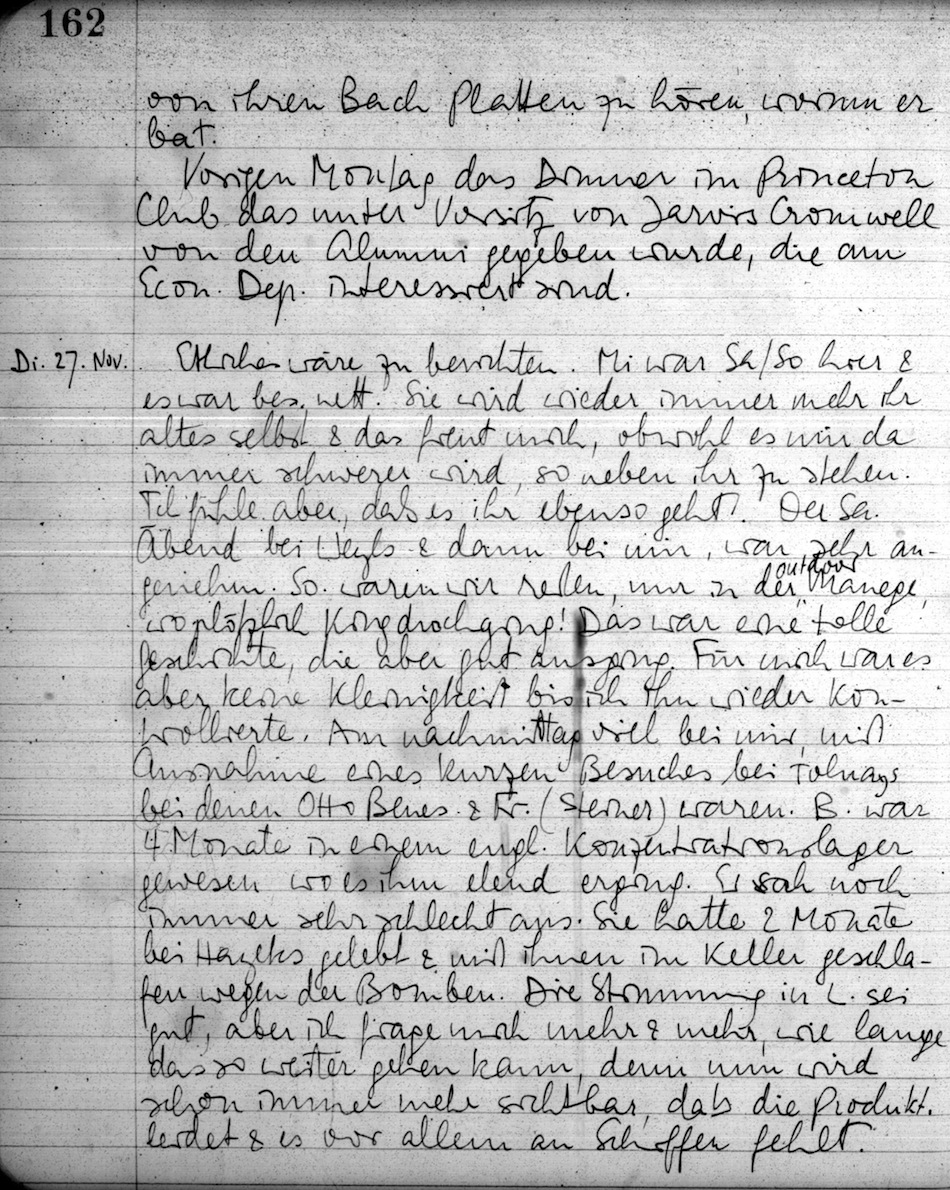 162
von ihren Bach Platten zu hören, worum er
bat.
Vorigen Montag das Dinner im Princeton
Club das unter Vorsitz von Jarvis Cromwell
von den Alumni gegeben wurde, die am
Econ. Dep. interessiert sind.
Di. 27. Nov. Etliches wäre zu berichten. Mi war Sa/So hier &
es war bes. nett. Sie wird wieder immer mehr ihr
altes selbst & das freut mich, obwohl es mir da
immer schwerer wird, so neben ihr zu stehen.
Ich fühle aber, dass es ihr ebenso geht. Der Sa.
Abend bei Weyls & dann bei mir, war sehr an-
genehm. So. waren wir reiten, nur in der outdoor Manege,
wo plötzlich King durchging! Das war eine tolle
Geschichte, die aber gut ausging. Für mich war es
aber keine Kleinigkeit bis ich ihn wieder kon-
trollierte. Am nachmittag viel bei mir, mit
Ausnahme eines kurzen Besuches bei Tolnays
bei denen Otto Benes. & Fr. (Steiner) waren. B. war
4 Monate in einem engl. Konzentrationslager
gewesen wo es ihm elend erging. Er sah noch
immer sehr schlecht aus. Sie hatte 2 Monate
bei Hayeks gelebt & mit ihnen im Keller geschla-
fen wegen der Bomben. Die Stimmung in L. sei
gut, aber ich frage mich mehr & mehr, wie lange
das so weiter gehen kann, denn nun wird
schon immer mehr sichtbar, dass die Produkt.
leidet & es vor allem an Schiffen fehlt.